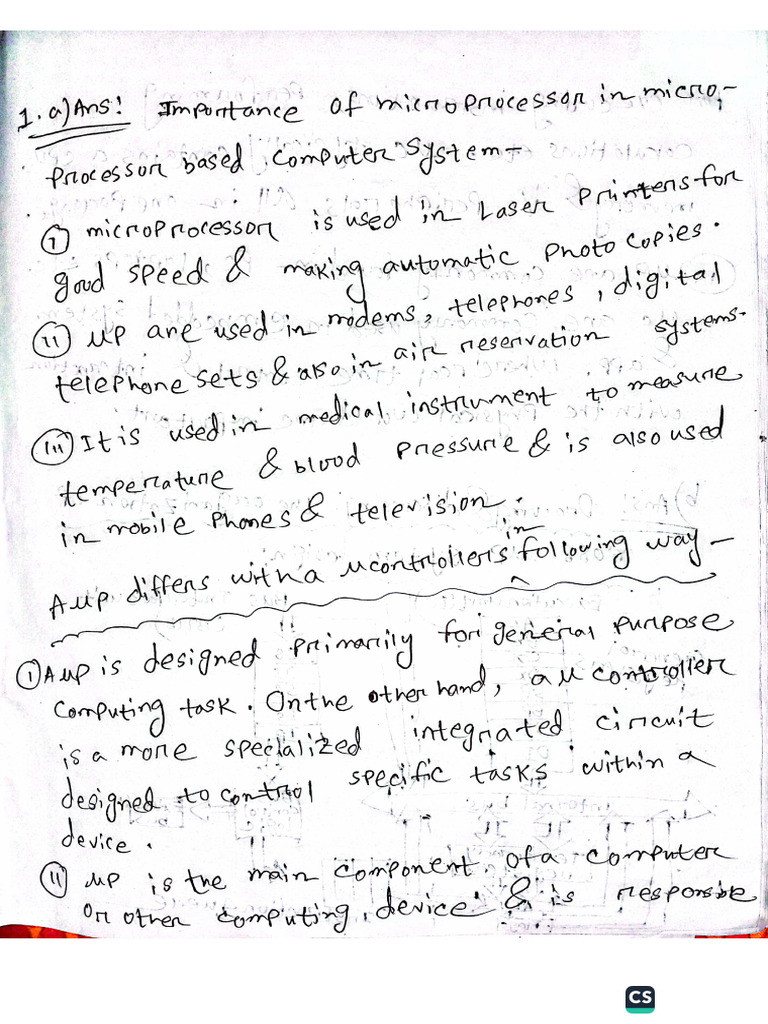 1. a) Ans: Importance of microprocessor in micro-
Processor based Computer System-
(i) microprocessor is used in Laser Printers for
good speed & making automatic Photo copies.
(ii) μp are used in modems, telephones, digital
telephone sets & also in air reservation systems.
(iii) It is used in medical instrument to measure
temperature & blood pressure & is also used
in mobile Phones & television.
A μp differs with a μcontrollers in following way-
(i) A μp is designed primarily for general purpose
Computing task. On the other hand, a μ controller
is a more specialized integrated circuit
designed to control specific tasks within a
device.
(ii) μp is the main component of a computer
or other computing device & is responsible
CS